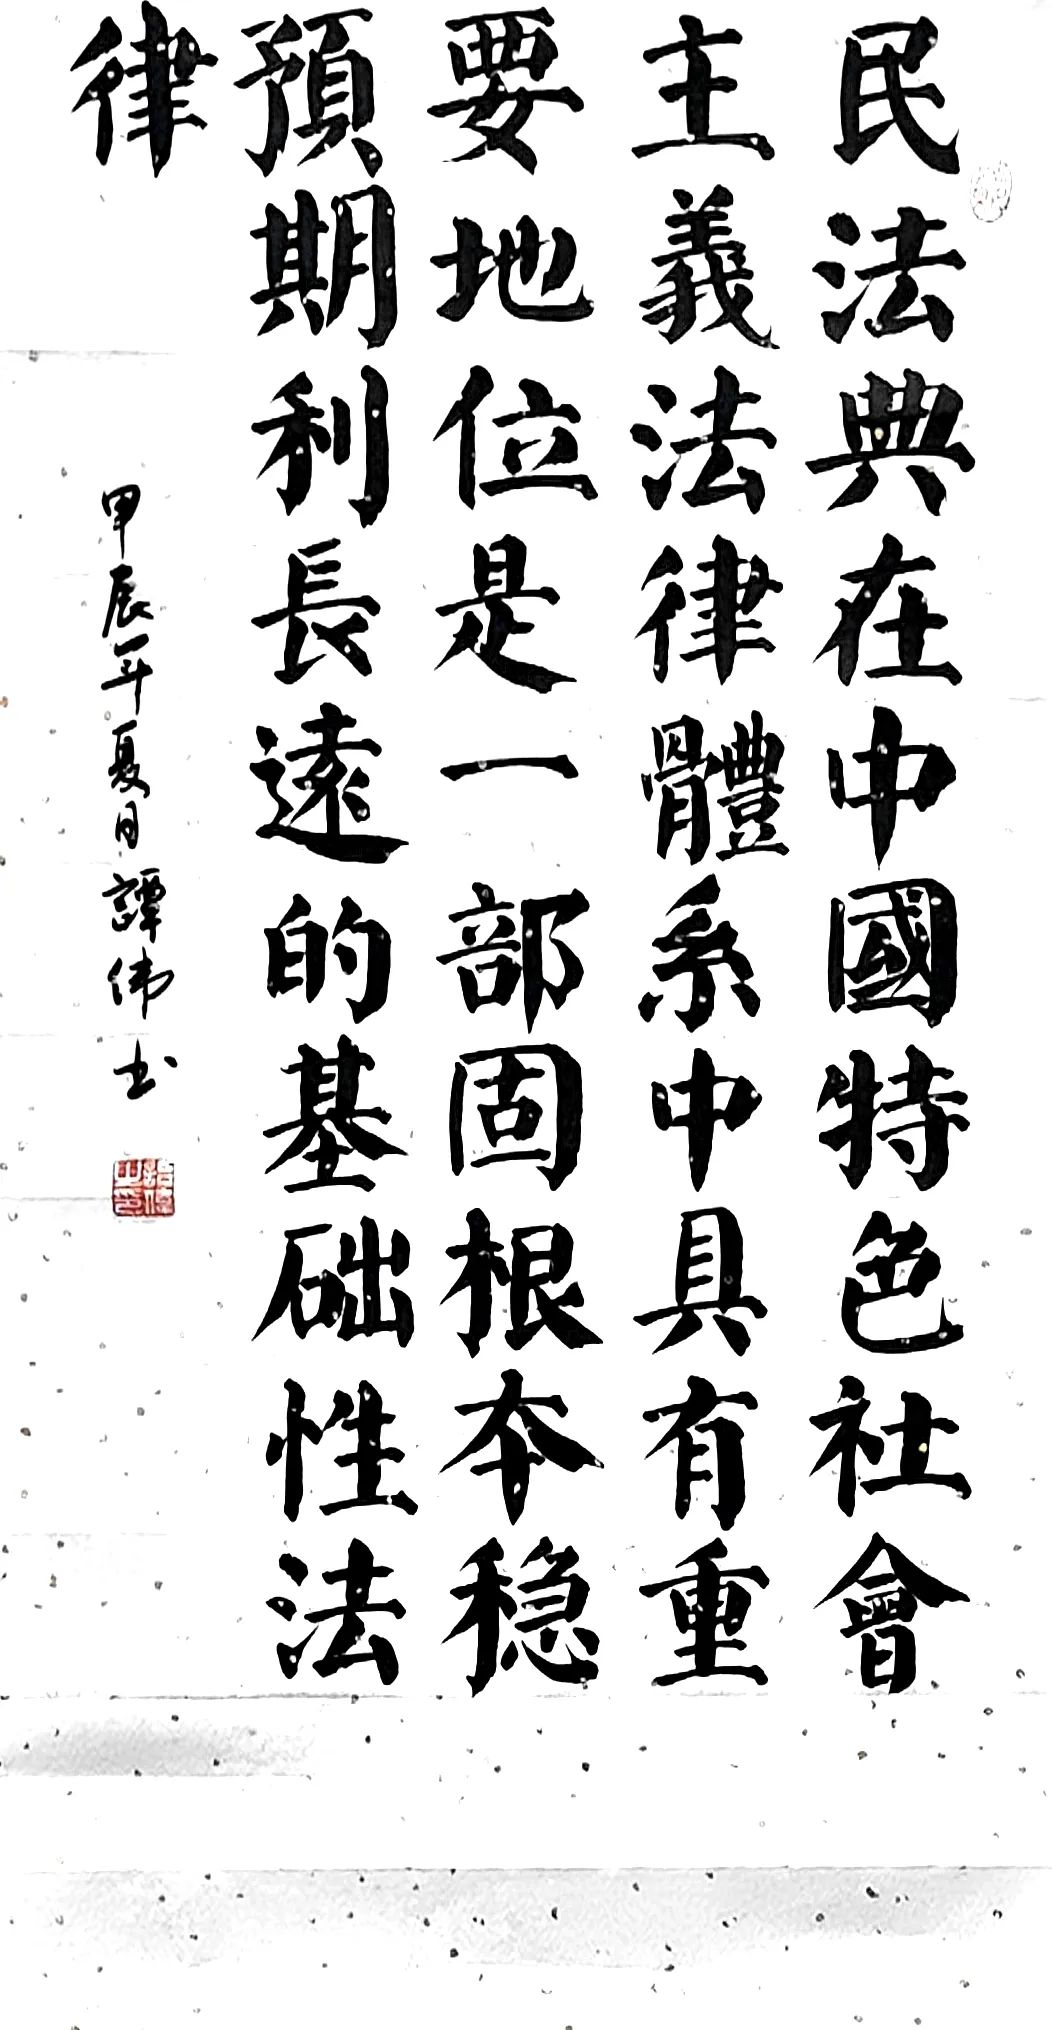 民法典在中國特色社會
主義法律體系中具有重
要地位是一部固根本穩
預期利長遠的基础性法
律
甲辰年夏日譚偉书